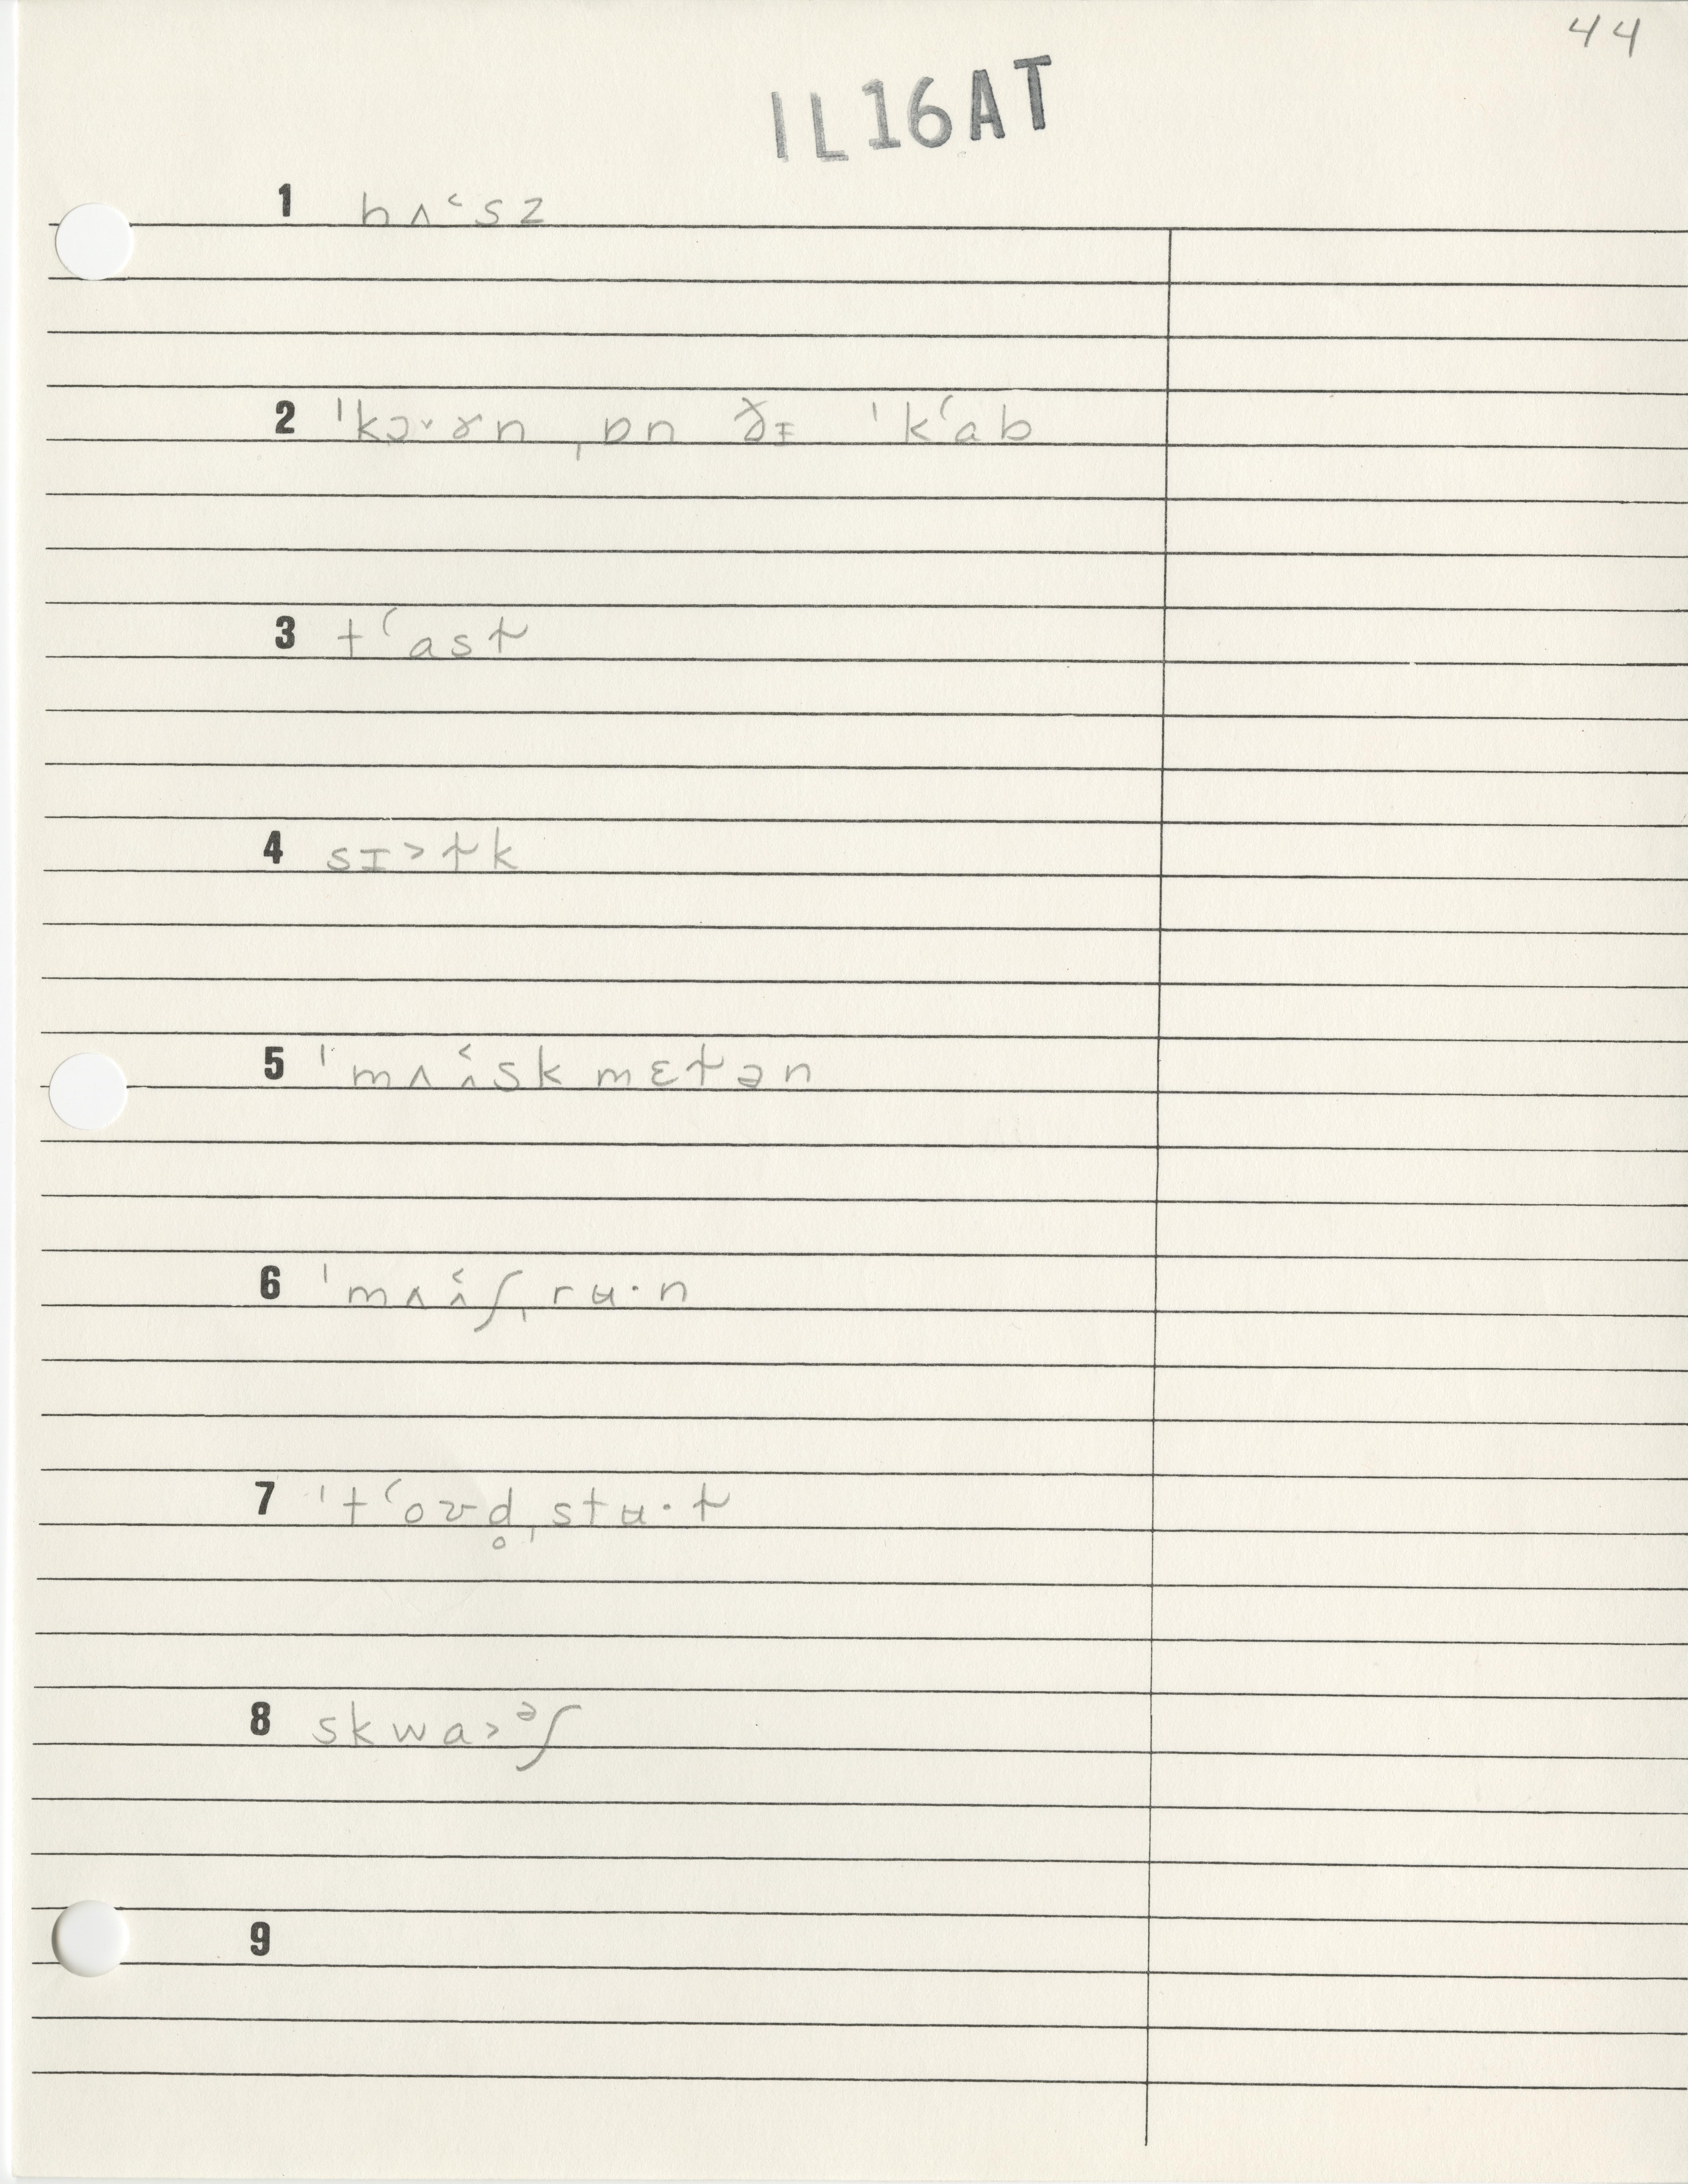 44
IL16AT
1 hʌ˂sz
2 ˈkɔ˅ɤn ˌɒn ðɪ ˈkʻab
3 tʻast̴
4 sɪ˃t̴k
5 ˈmʌʌ̂skmɛt̴ən
6 ˈmʌʌ̂ʃˌrʉ·n
7 ˈtʻoʊd̥ˌstʉ·t̴
8 skwa˃ᵊʃ
9